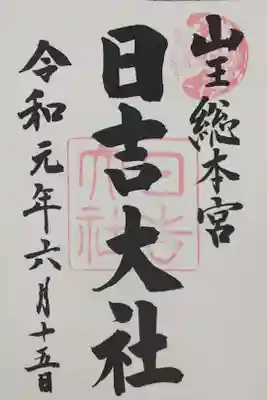 山王総本宮
日吉大社
令和元年六月十五日
日吉大社